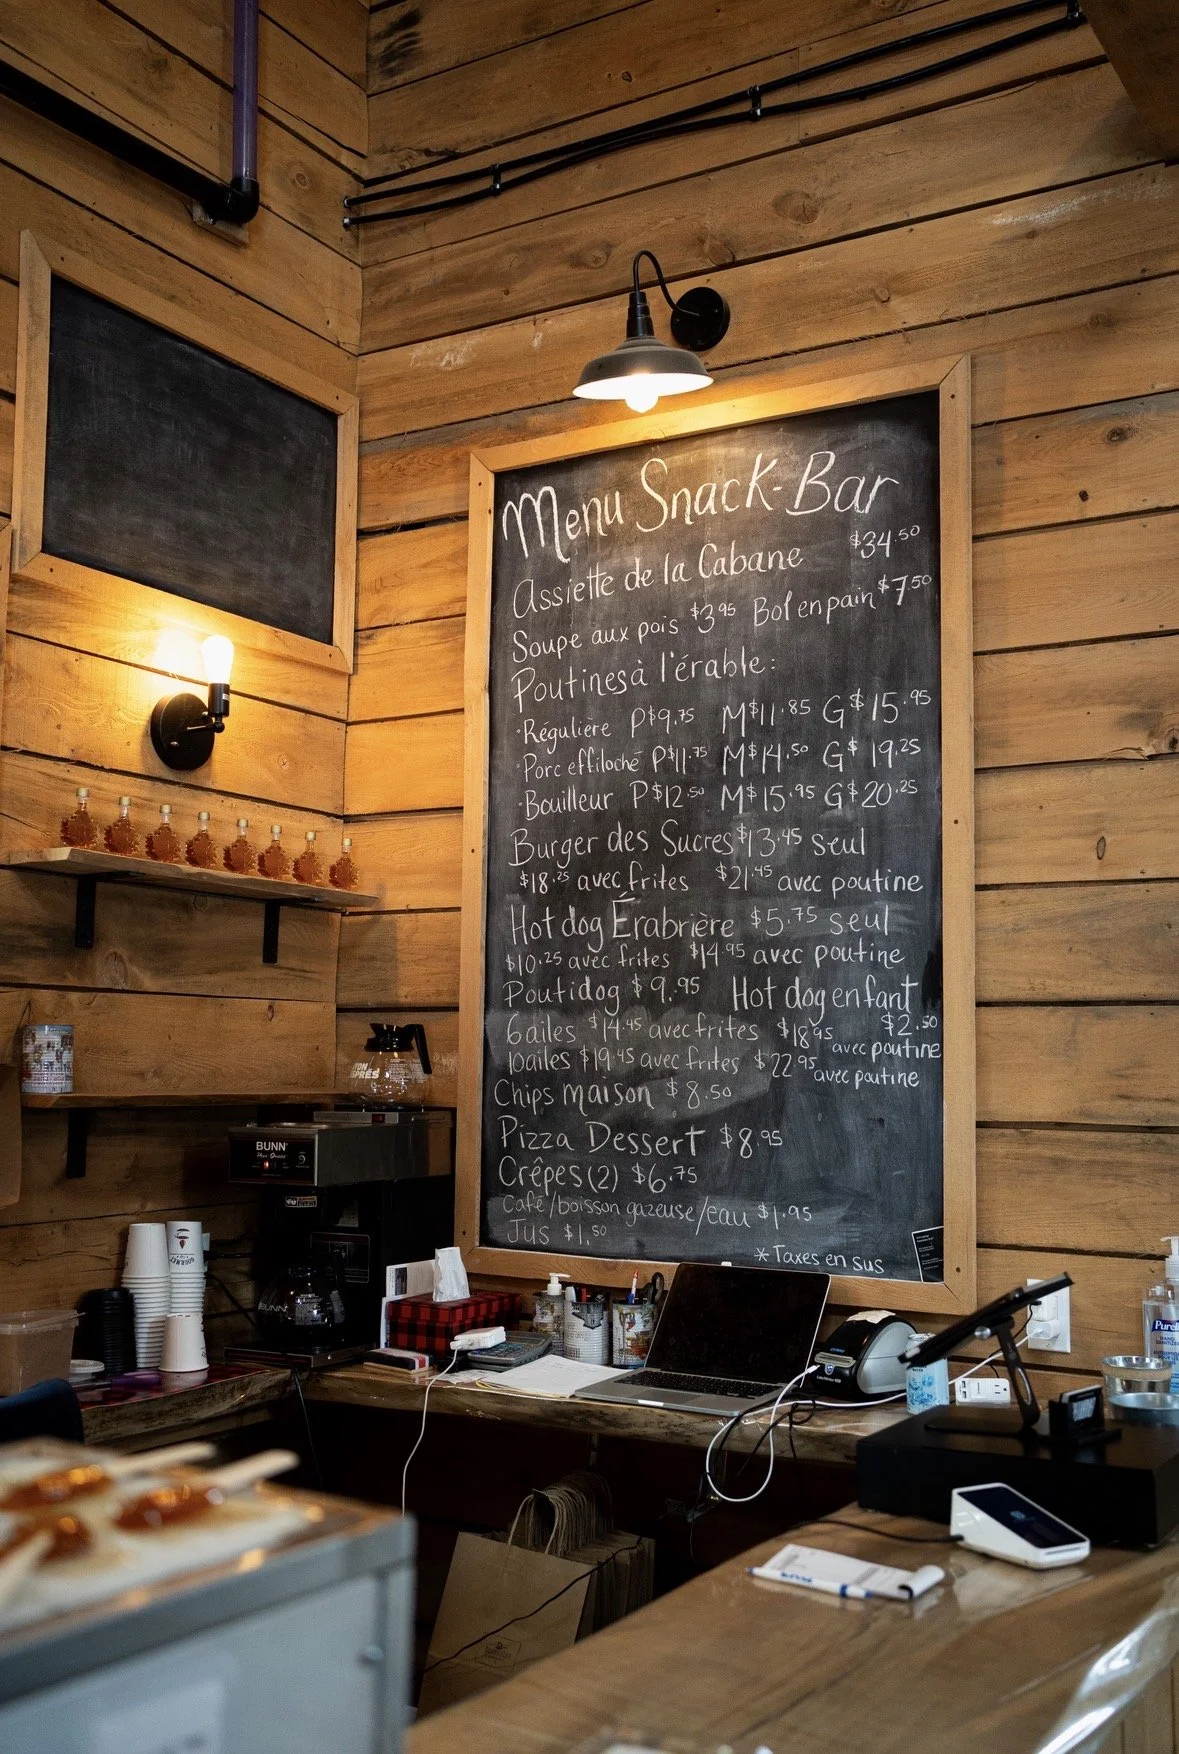 Menu Snack-Bar
Assiette de la Cabane $34.50
Soupe aux pois $3.95 Bol en pain $7.50
Poutines à l'érable:
·Régulière P$9.75 M$11.85 G$15.95
·Porc effiloché P$11.75 M$14.50 G$19.25
·Bouilleur P$12.50 M$15.95 G$20.25
Burger des Sucres $13.45 seul
$18.25 avec frites $21.45 avec poutine
Hot dog Érabrière $5.75 seul
$10.25 avec frites $14.95 avec poutine
Poutidog $9.95 Hot dog enfant
$2.50
6 ailes $14.45 avec frites $18.95 avec poutine
10 ailes $19.45 avec frites $22.95 avec poutine
Chips maison $8.50
Pizza Dessert $8.95
Crêpes (2) $6.75
Café/boisson gazeuse/eau $1.95
Jus $1.50
*Taxes en sus
BUNN
BUNN
Purell